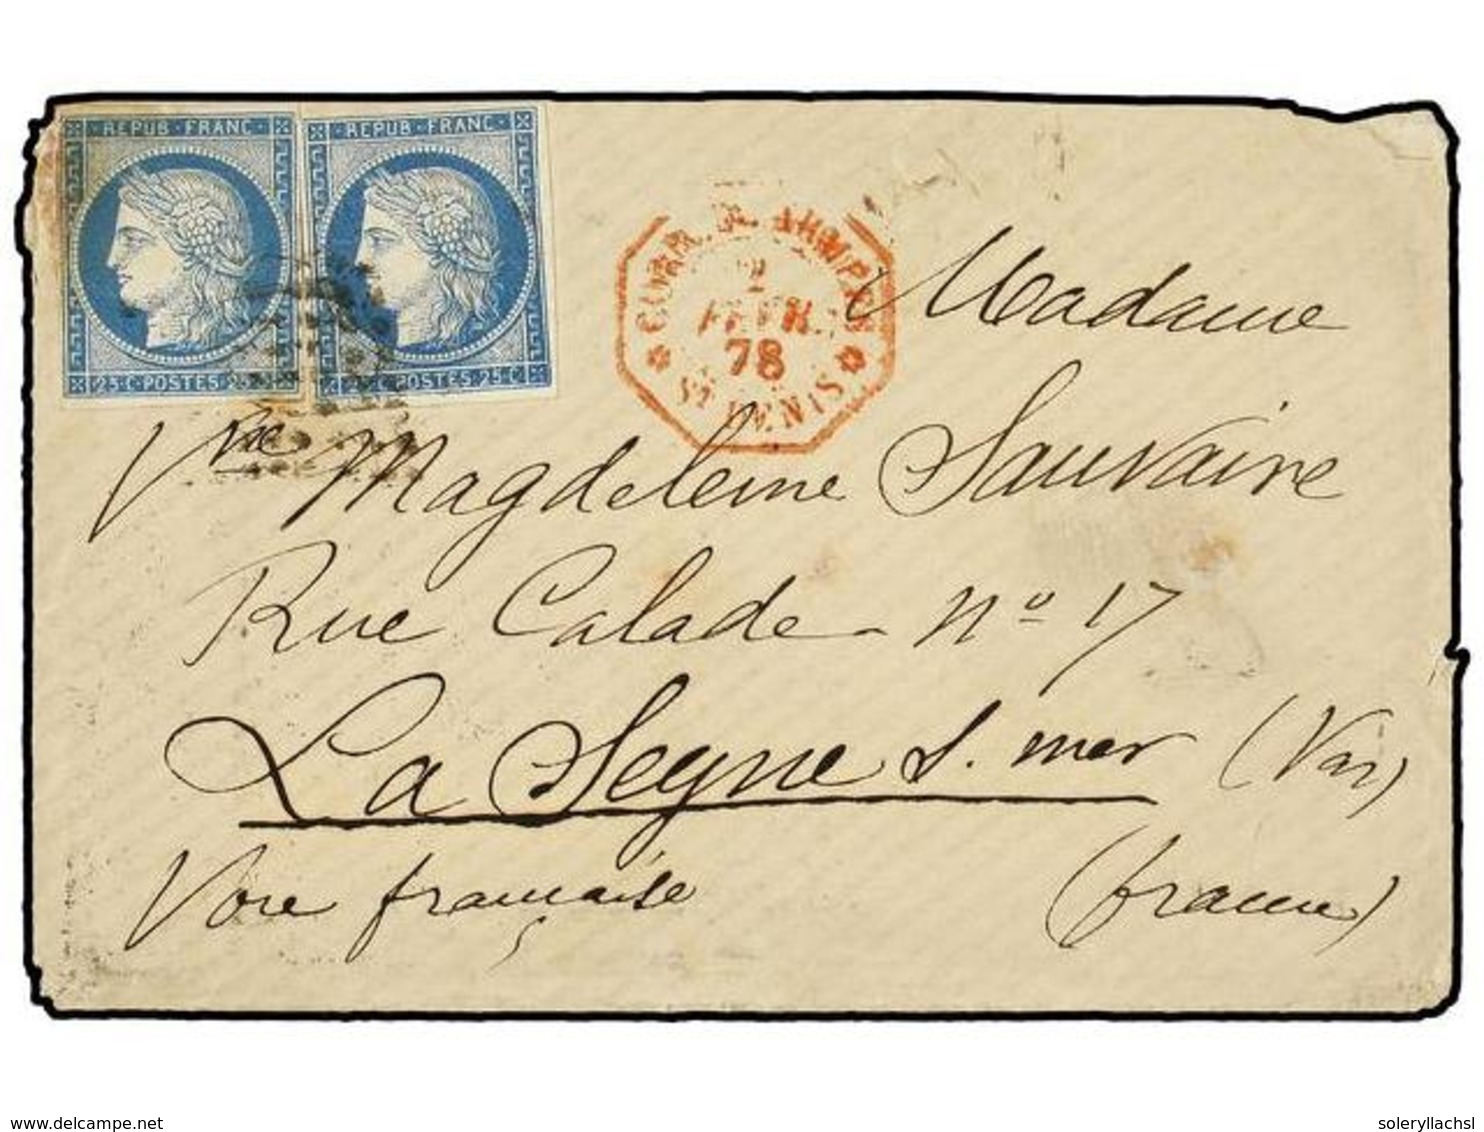 REPUB·FRANC· REPUB·FRANC·
25·C·POSTES·25·C 25·C·POSTES·25·C
CORR. D. ARMÉES
2
FEVR.
78
ST DENIS
Madame
Vve Magdeleine Sauvaire
Rue Calade - No 17
La Seyne s. mer (Var)
Voie française (france)
www.delcampe.net
soleryllachsl